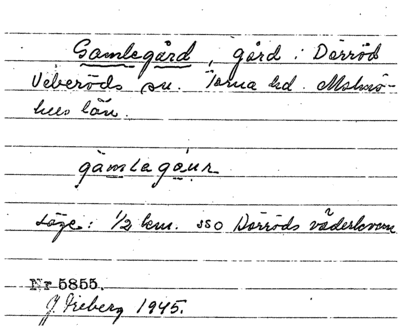 Gamlegård, gård i Dörröd
Veberöds sn. Torna hd. Malmö-
hus län.
gamlagåuʀ
Läge: 1/2 km. SSO Dörröds väderkvarn
Nr 5855.
1945.